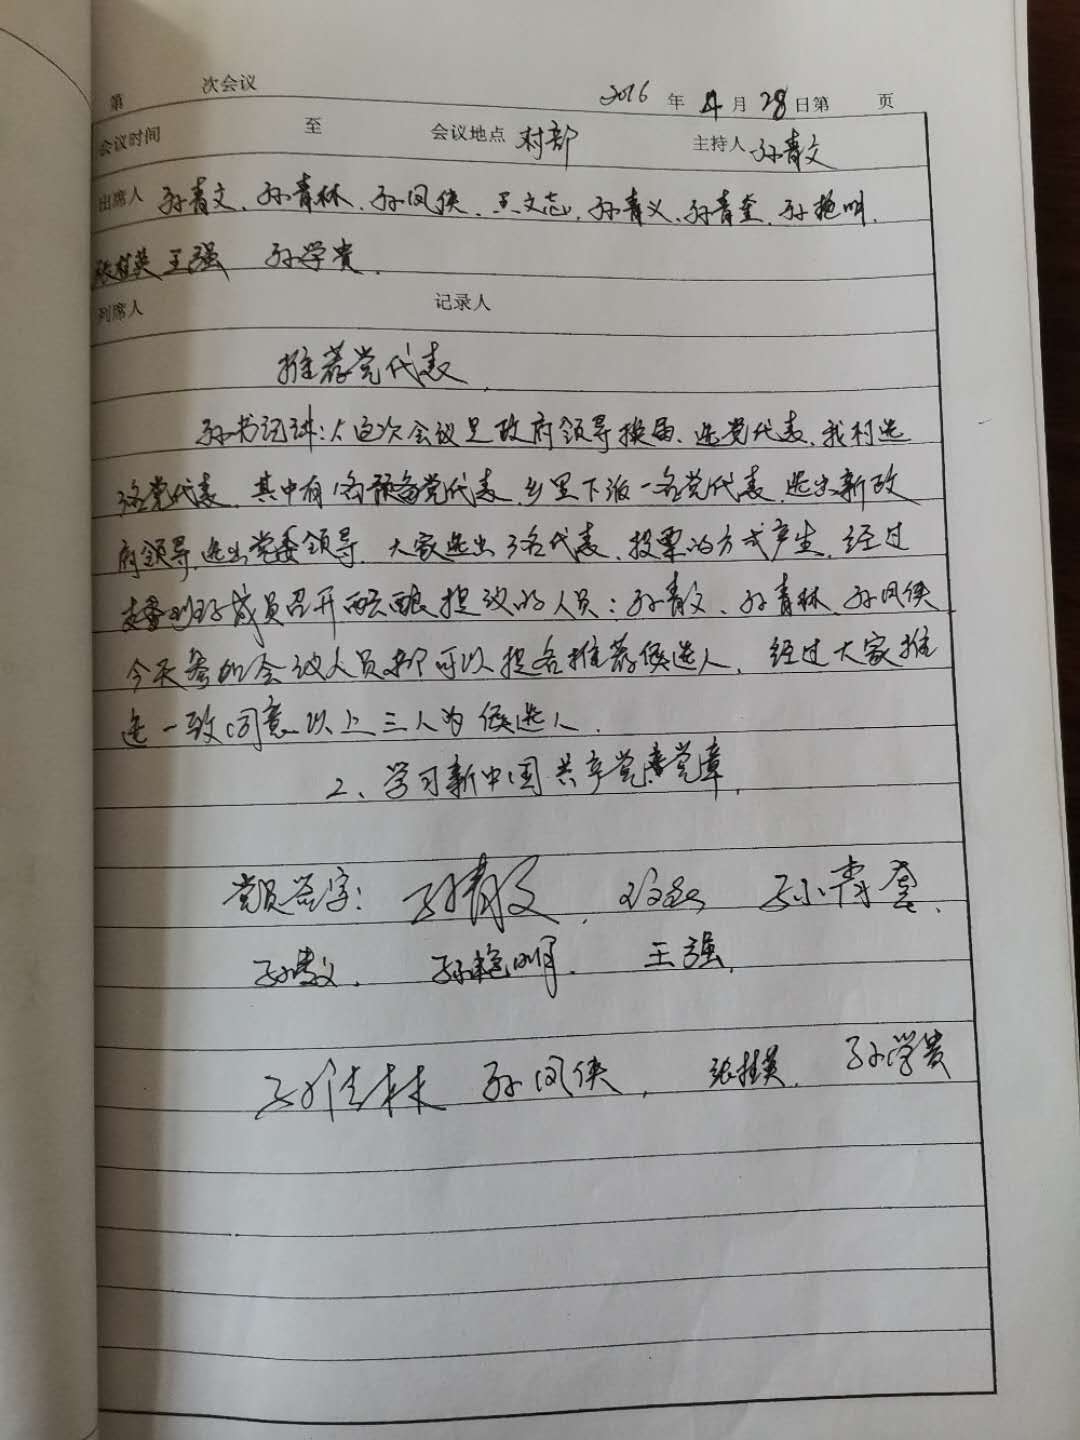 第 次会议 2016年4月28日第 页
会议时间 至 会议地点 村部 主持人 孙青文
出席人 孙青文、孙青林、孙凤侠、王文志、孙青义、孙青奎、孙艳明、
张桂英 王强 孙学贵、
列席人 记录人
推荐党代表
孙书记讲:1、这次会议是政府领导换届、选党代表、我村选
3名党代表、其中有1名预备党代表、乡里下派一名党代表、选出新政
府领导、选出党委领导、大家选出3名代表、投票的方式产生、经过
支委班子成员召开 提议的人员:孙青文、孙青林、孙凤侠
今天参加会议人员都可以提名推荐候选人、经过大家推
选一致同意以上三人为候选人.
2、学习新中国共产党党章.
党员签字:孙青文、 孙青奎、
孙青义、 孙艳明、 王强、
孙青林 孙凤侠、 张桂英、 孙学贵